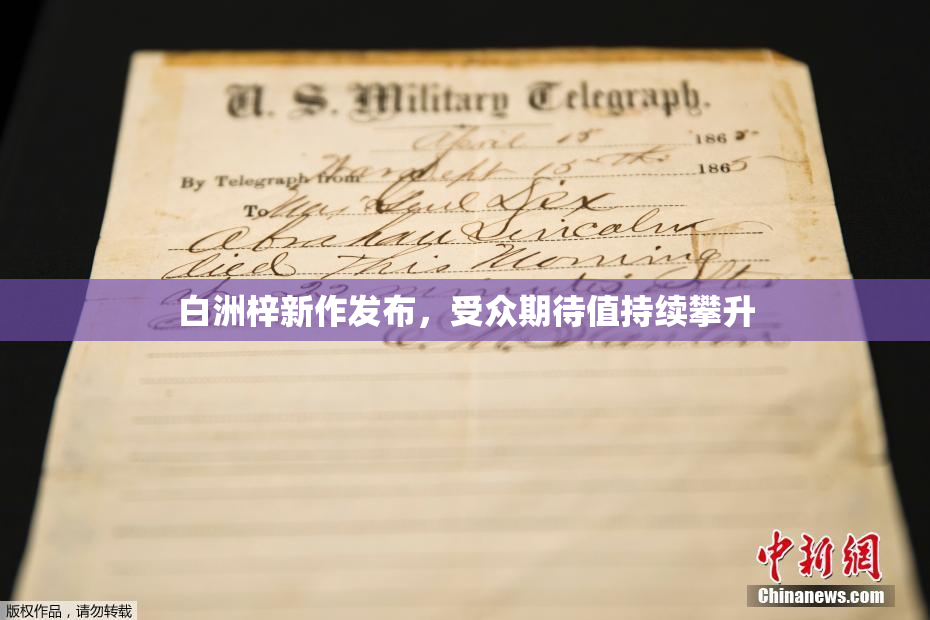 U. S. Military Telegraph.
April 15 1865
By Telegraph from War Dept 15th 1865
To Maj Genl Dix
Abraham Lincoln
died This Morning
22 minutes after
白洲梓新作发布，受众期待值持续攀升
E. M. Stanton
中新網
Chinanews.com
版权作品，请勿转载